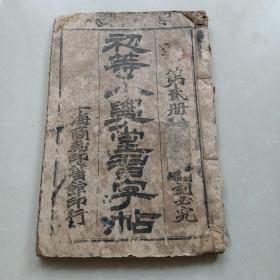 第貳册
初等小學堂習字帖
翻刻必究
上海商務印書館印行